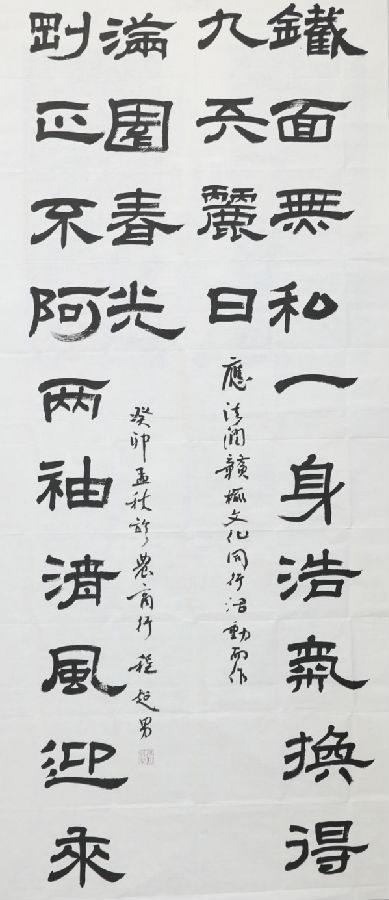 鐵面無私一身浩氣換得
九天麗日
應法潤贛文化同行活動而作
剛正不阿两袖清風迎來
滿園春光
癸卯孟秋於農商行程男